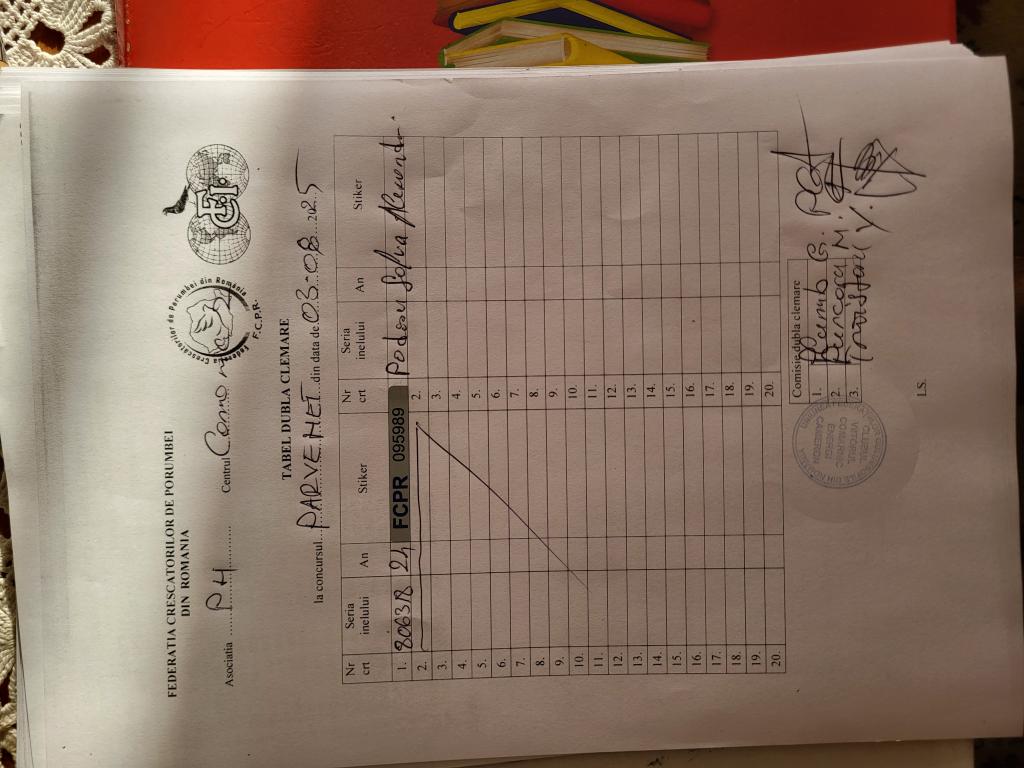 FEDERATIA CRESCATORILOR DE PORUMBEI
DIN ROMANIA
Asociatia ......PH............ Centrul
Federatia Crescatorilor de Porumbei din România
F.C.P.R.
TABEL DUBLA CLEMARE
la concursul...PARVEHET...din data de 03-08...2025
Nr crt Seria inelului An Stiker Nr crt Seria inelului An Stiker
1. 806318 24 FCPR 095989 Sofia
2. 2.
3. 3.
4. 4.
5. 5.
6. 6.
7. 7.
8. 8.
9. 9.
10. 10.
11. 11.
12. 12.
13. 13.
14. 14.
15. 15.
16. 16.
17. 17.
18. 18.
19. 19.
20. 20.
Comisie dubla clemare
1.
2.
3.
LS.